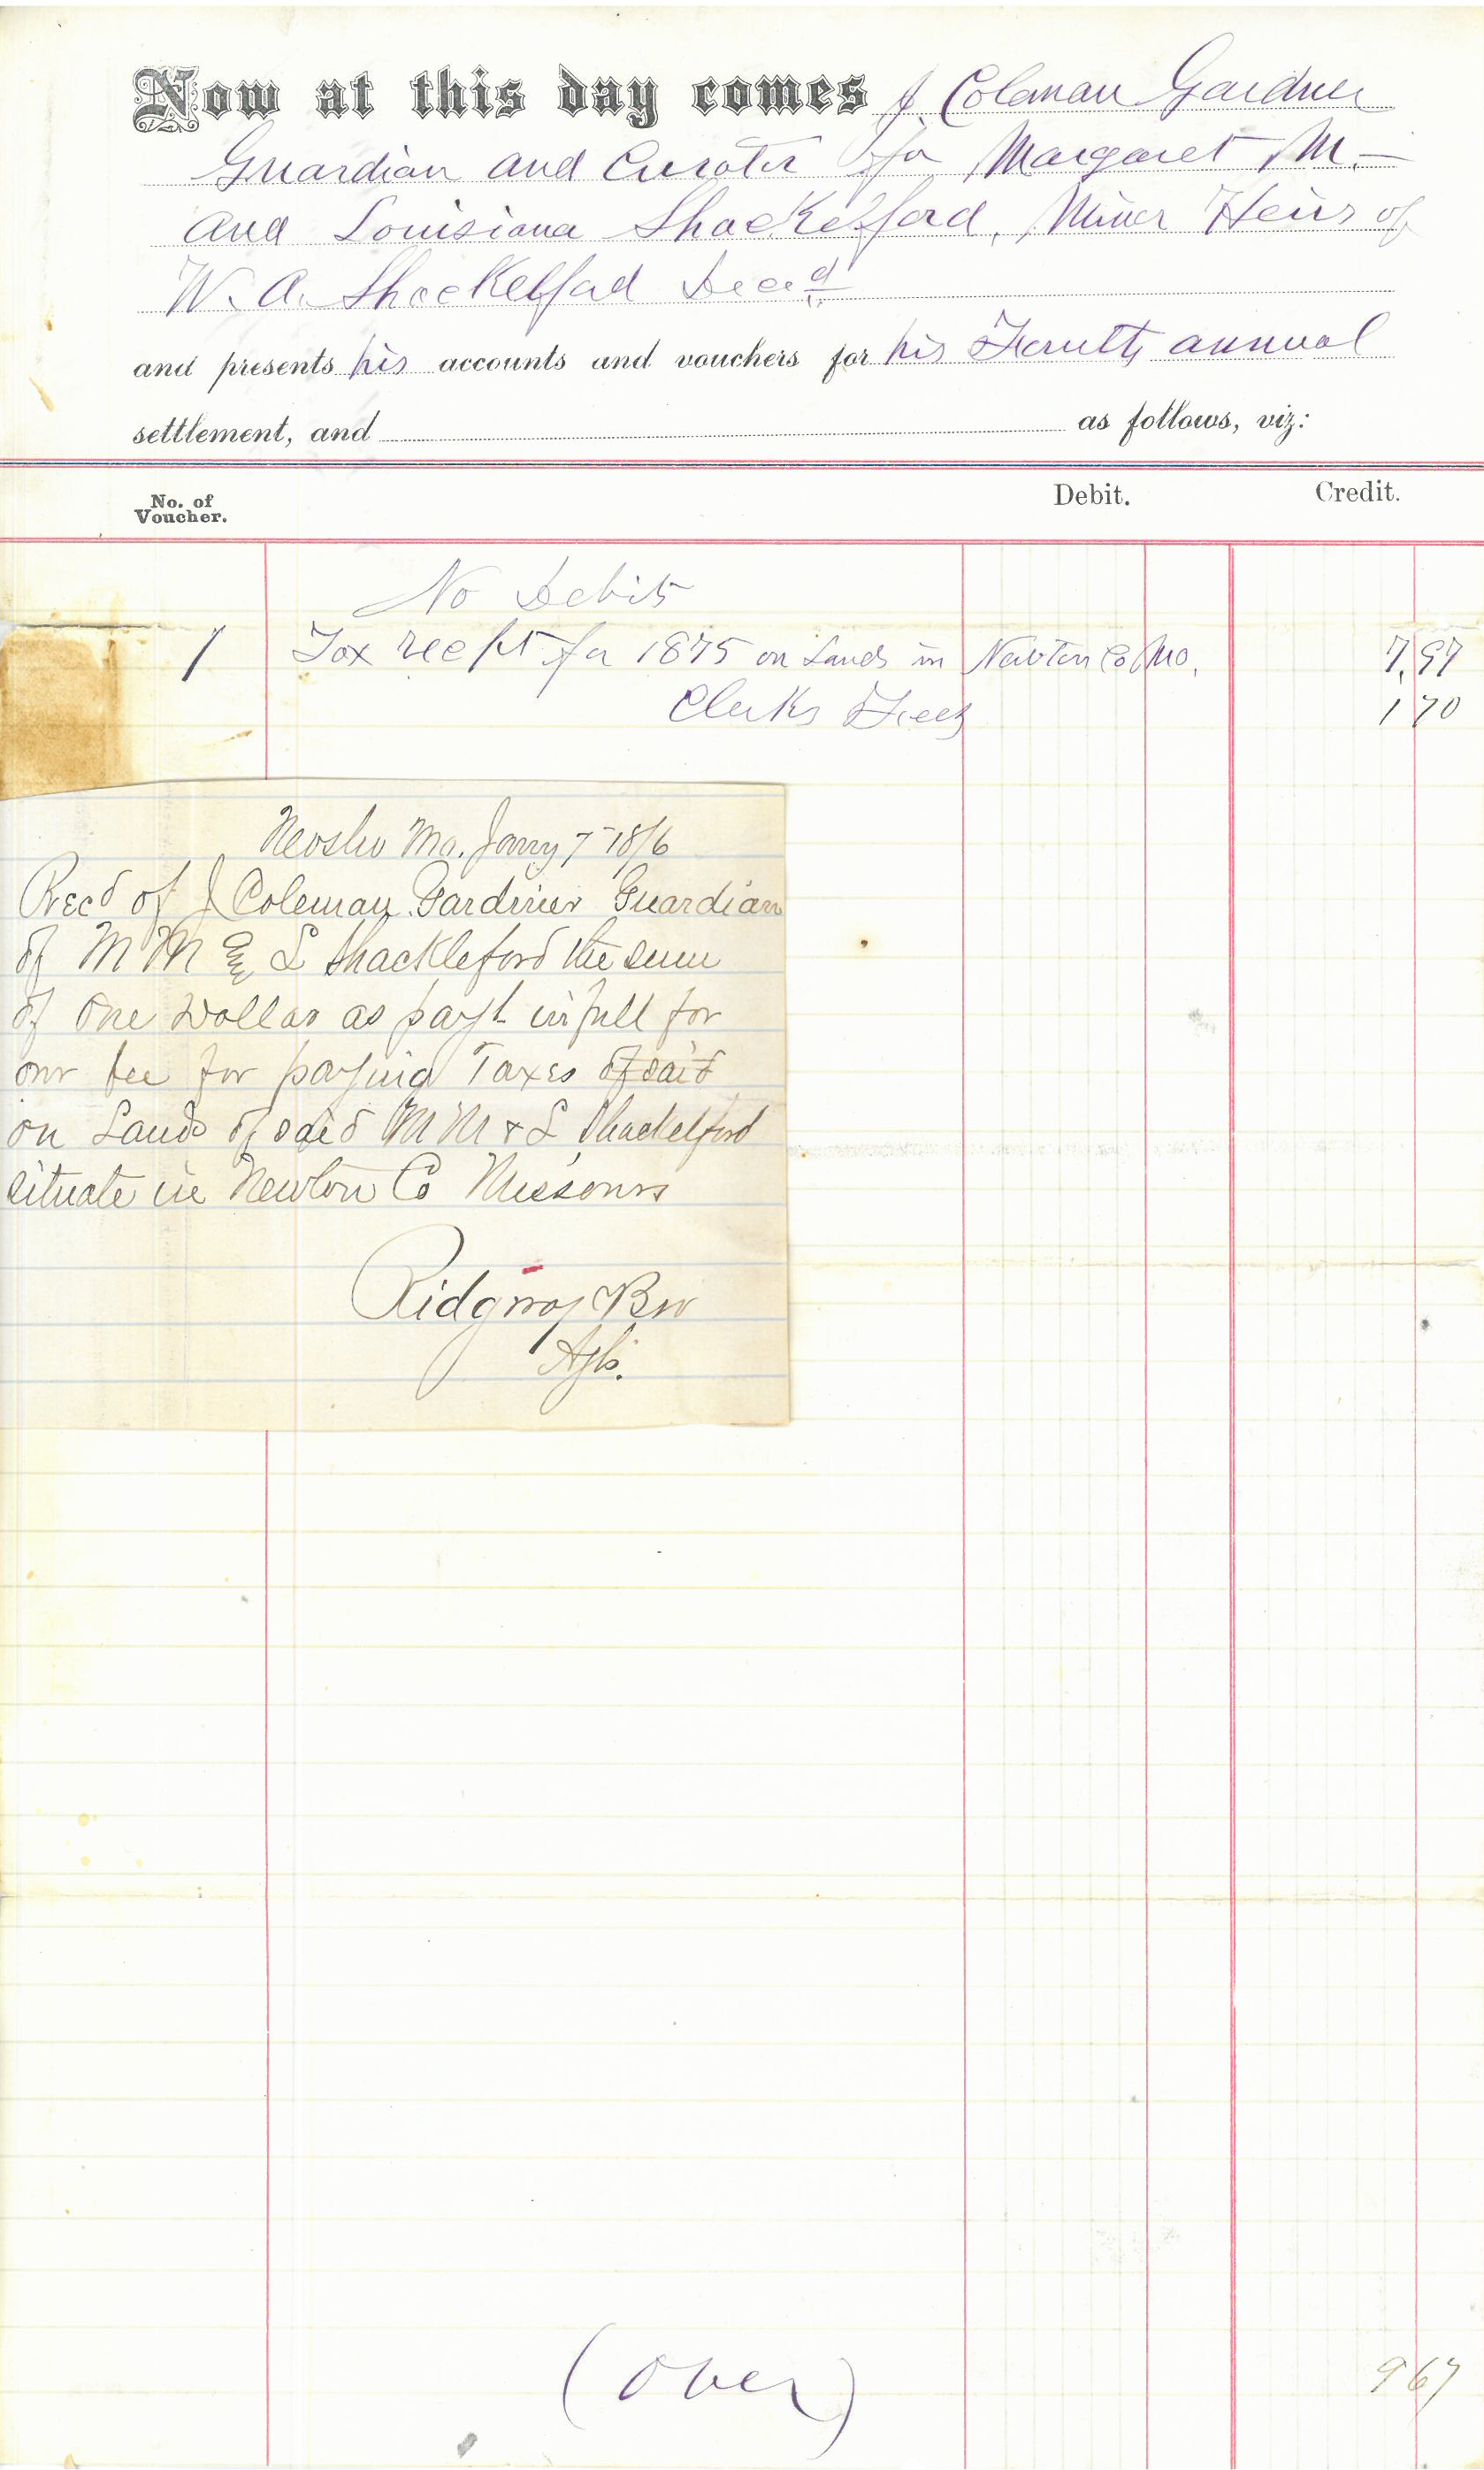 Now at this day comes J. Coleman Gardner
Guardian and Curator for Margaret M.
and Louisiana Shackelford, Minor Heirs of
W. A. Shackelford Decd
and presents his accounts and vouchers for his Fourth annual
settlement, and as follows, viz:
No. of
Voucher. Debit. Credit.
No Debits
1 Tax recpt for 1875 on Lands in Newton Co Mo. 7.97
Clerks Fees 1 70
Neosho Mo. Jany 7 1876
Recd of J Coleman Gardner Guardian
of M M & L Shackleford the sum
of One Dollar as payt in full for
our fee for paying Taxes of said
on Lands of said M M & L Shackelford
situate in Newton Co Missouri
Ridgway & Bro
Agts.
(Over) 9 67